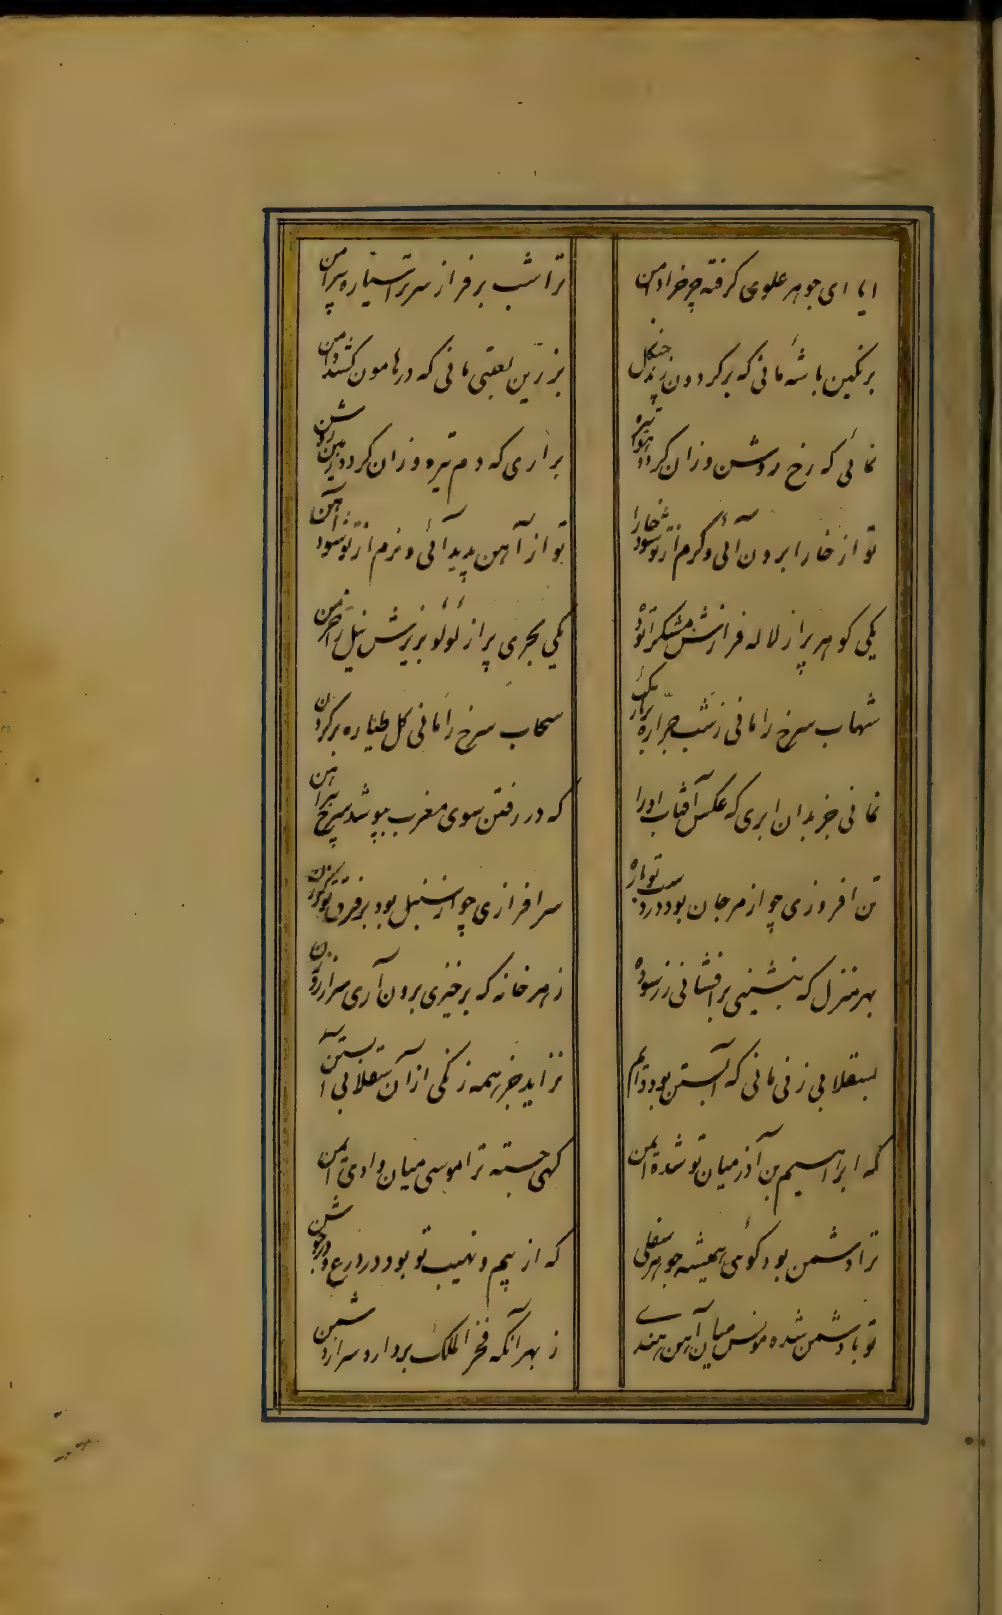 ایا ای جوهر علوی گرفته چرخ را دامن
ترا شب بر فراز سر ترا سیاره پیرامن
برنگین باشه مانی که بر گردون زند چنگل
بزرین لعبتی مانی که در هامون کشد دامن
نمائی که رخ روشن وزان گردد هوا تیره
براری که دم تیره وزان گردد زمین روشن
تو از خارا برون آئی و گرم از تو شود خارا
تو از آهن پدید آئی و نرم از تو شود آهن
یکی گوهر پر از لاله فرازش مشک تر توده
یکی بحری پر از لولو بزیرش نیل تر خرمن
شهاب سرخ را مانی ز شب جراره بر تارک
سحاب سرخ را مانی گل طیاره بر گردن
نمانی جز بدان ابری که عکس آفتاب او را
که در رفتن سوی مغرب بپوشد سرخ پیراهن
تن افروزی چو از مرجان بود در دست تو یاره
سرافرازی چو از سنبل بود بر فرق تو گرزن
بهر منزل که بنشینی برافشانی زر سوده
ز هر خانه که برخیزی برون آری سر از روزن
بسقلابی زنی مانی که آبستن بود دایم
نزاید جز همه زنگی ازان سقلابی آبستن
گه ابراهیم بن آذر میان تو شده ایمن
گهی جسته ترا موسی میان وادی ایمن
ترا دشمن بود گوئی همیشه جوهر سفلی
که از بیم و نهیب تو بود در درع و در جوشن
تو با دشمن شده مونس میان آهن هندی
ز بهر آنکه فخر الملک بردارد سر از دشمن